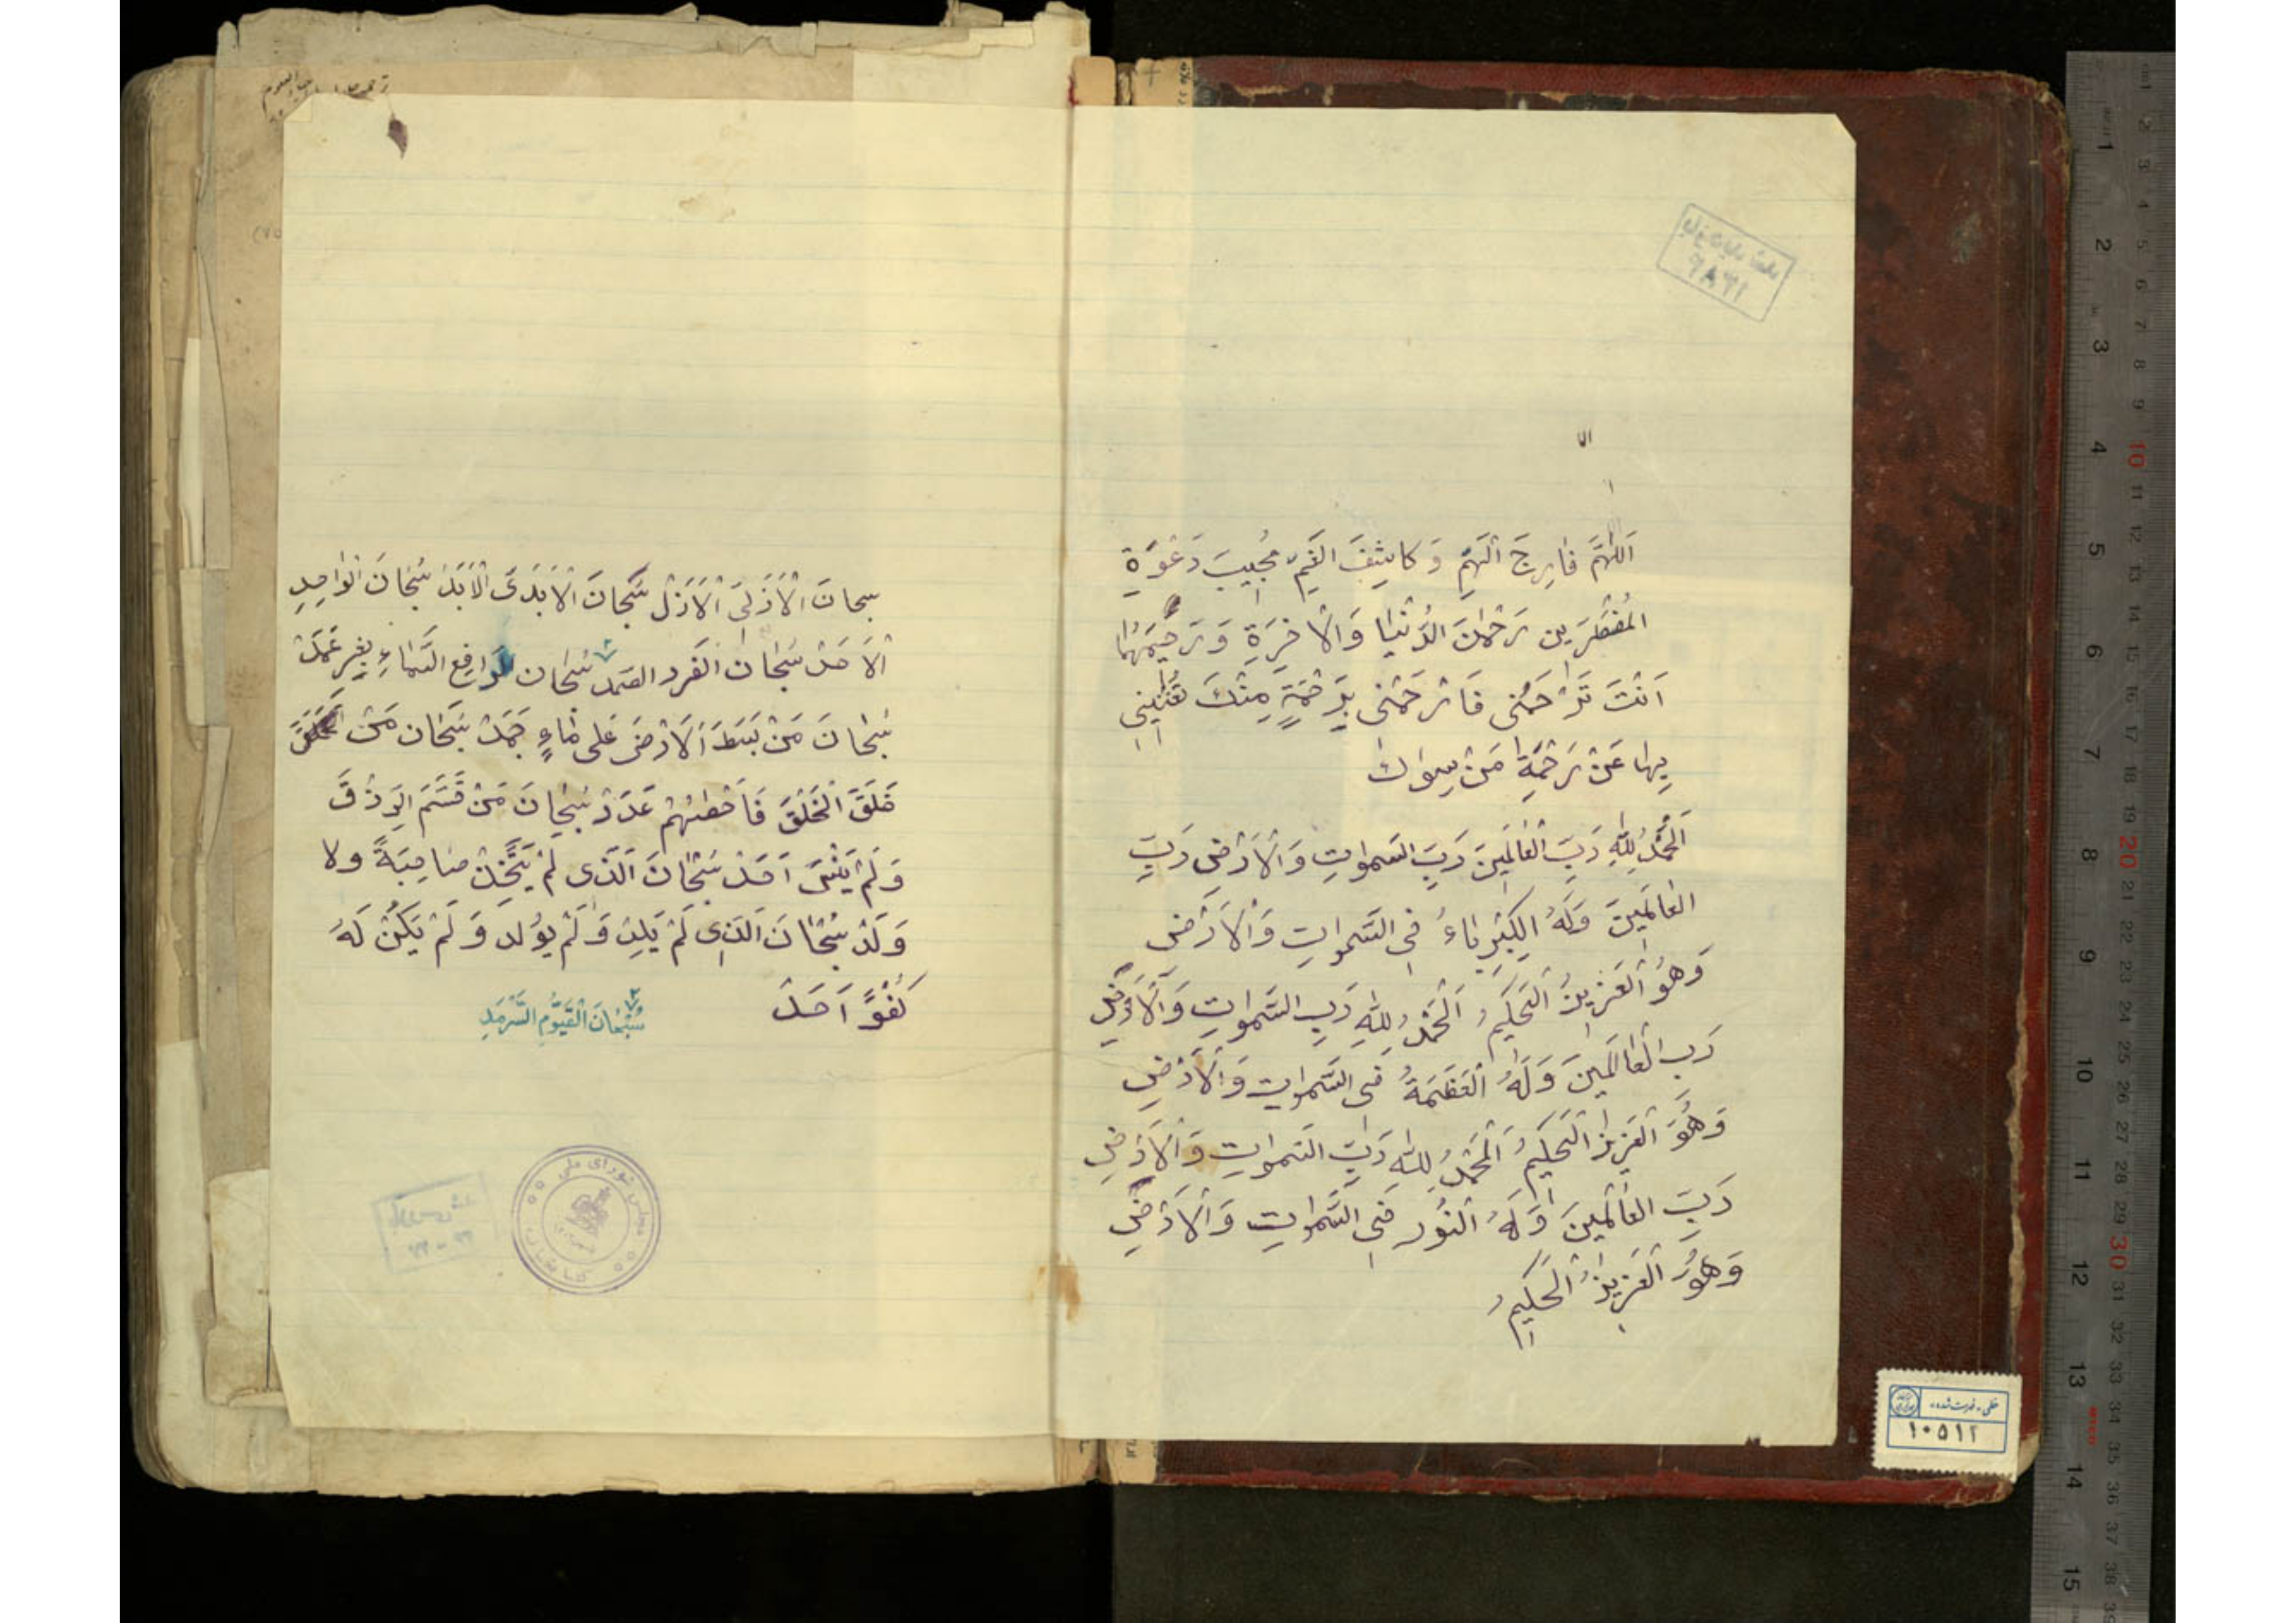 اَللّهُمَّ فارِجَ الْهَمِّ وَ كاشِفَ الغَمِّ مُجِيبَ دَعْوَةِ
المُضْطَرّين رَحْمٰنَ الدُّنْيا وَالْاخِرَةِ وَ رَحيمَهُما
اَنْتَ تَرْحَمُنى فَارْحَمْنى بِرَحْمَةٍ مِنْكَ تُغْنينى
بِها عَنْ رَحْمَةِ مَنْ سِواكَ
اَلْحَمْدُ لِلّهِ رَبِّ الْعالَمينَ رَبِّ السّمواتِ وَ الْاَرْضِ رَبِّ
العالَمينَ وَلَهُ الكِبْرِياءُ فِى السَّمواتِ وَ الْاَرْضِ
وَ هُوَ الْعَزيزُ الْحَكيمُ اَلْحَمْدُ لِلّهِ رَبِ السَّمواتِ وَ الْاَرْضِ
رَبِ الْعالَمينَ وَ لَهُ الْعَظَمَةُ فى السَّمواتِ وَ الْاَرْضِ
وَ هُوَ الْعَزيزُ الْحَكيمُ اَلْحَمْدُ لِلّهِ رَبِّ السَّمواتِ وَ الْاَرْضِ
رَبِّ العالَمينَ وَ لَهُ النُّور فِى السَّمواتِ وَ الْاَرْضِ
وَ هُوَ الْعَزيزُ الْحَكيمُ
سبحانَ الْاَزَلىِّ الْاَزَلْ سُبْحانَ الْاَبَدىَ الْاَبَدْ سُبْحانَ الْواحِدِ
الْاَحَدْ سُبْحانَ الْفَرد الصّمد سُبْحان رافِع السَّماءِ بِغَيرِ عَمَدْ
سُبْحانَ مَنْ بَسَطَ الْاَرْضَ عَلى ماءٍ جَمَدْ سُبْحان مَنْ
خَلَقَ الْخَلْقَ فَاَحْصٰيهُمْ عَدَدْ سُبْحانَ مَنْ قَسَّمَ الرِزْقَ
وَ لَمْ يَنْسَ اَحَدْ سُبْحانَ الَّذى لَمْ يَتَّخِذْ صاحِبَةً ولا
وَلَدْ سُبْحانَ الَّذى لَمْ يَلِدْ وَ لَمْ يُولَد وَ لَمْ يَكُنْ لَهُ
كُفُوًا اَحَدْ
سُبْحانَ الْقَيُّومِ السَّرْمَدِ
مجلس شورای ملی
خطی - فهرست شده
١٠٥١٢